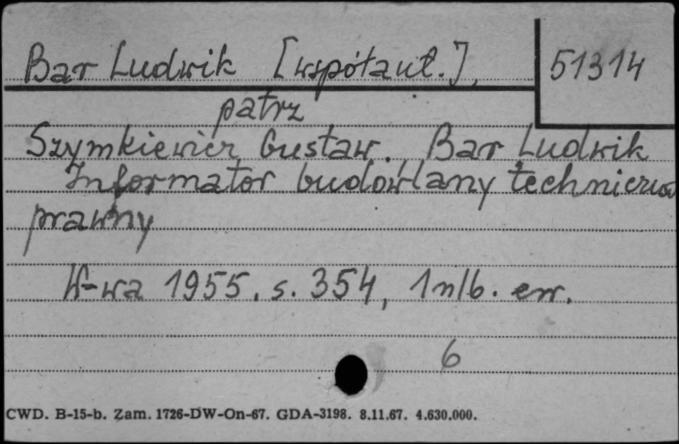 Bar Ludwik [współaut.],
51314
patrz
Szymkiewicz Gustaw. Bar Ludwik
Informator budowlany techniczno
prawny
W-wa 1955. s. 354, 1 nlb. err.
6
CWD. B-15-b. Zam. 1726-DW-On-67. GDA-3198. 8.11.67. 4.630.000.